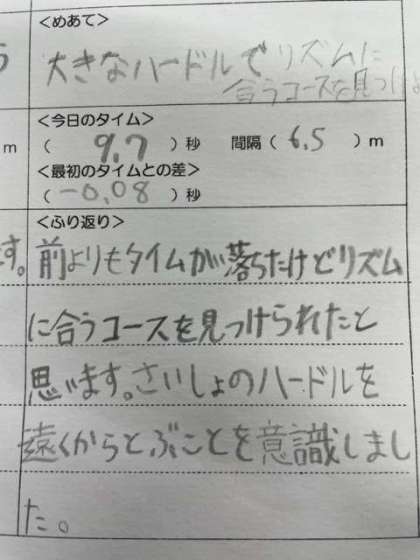 <めあて>
大きなハードルでリズムに
合うコースを見つけ
<今日のタイム>
m ( 9.7 )秒 間隔( 6.5 )m
<最初のタイムとの差>
( -0.08 )秒
<ふり返り>
す。前よりもタイムが落ちたけどリズム
に合うコースを見つけられたと
思います。さいしょのハードルを
遠くからとぶことを意識しまし
た。